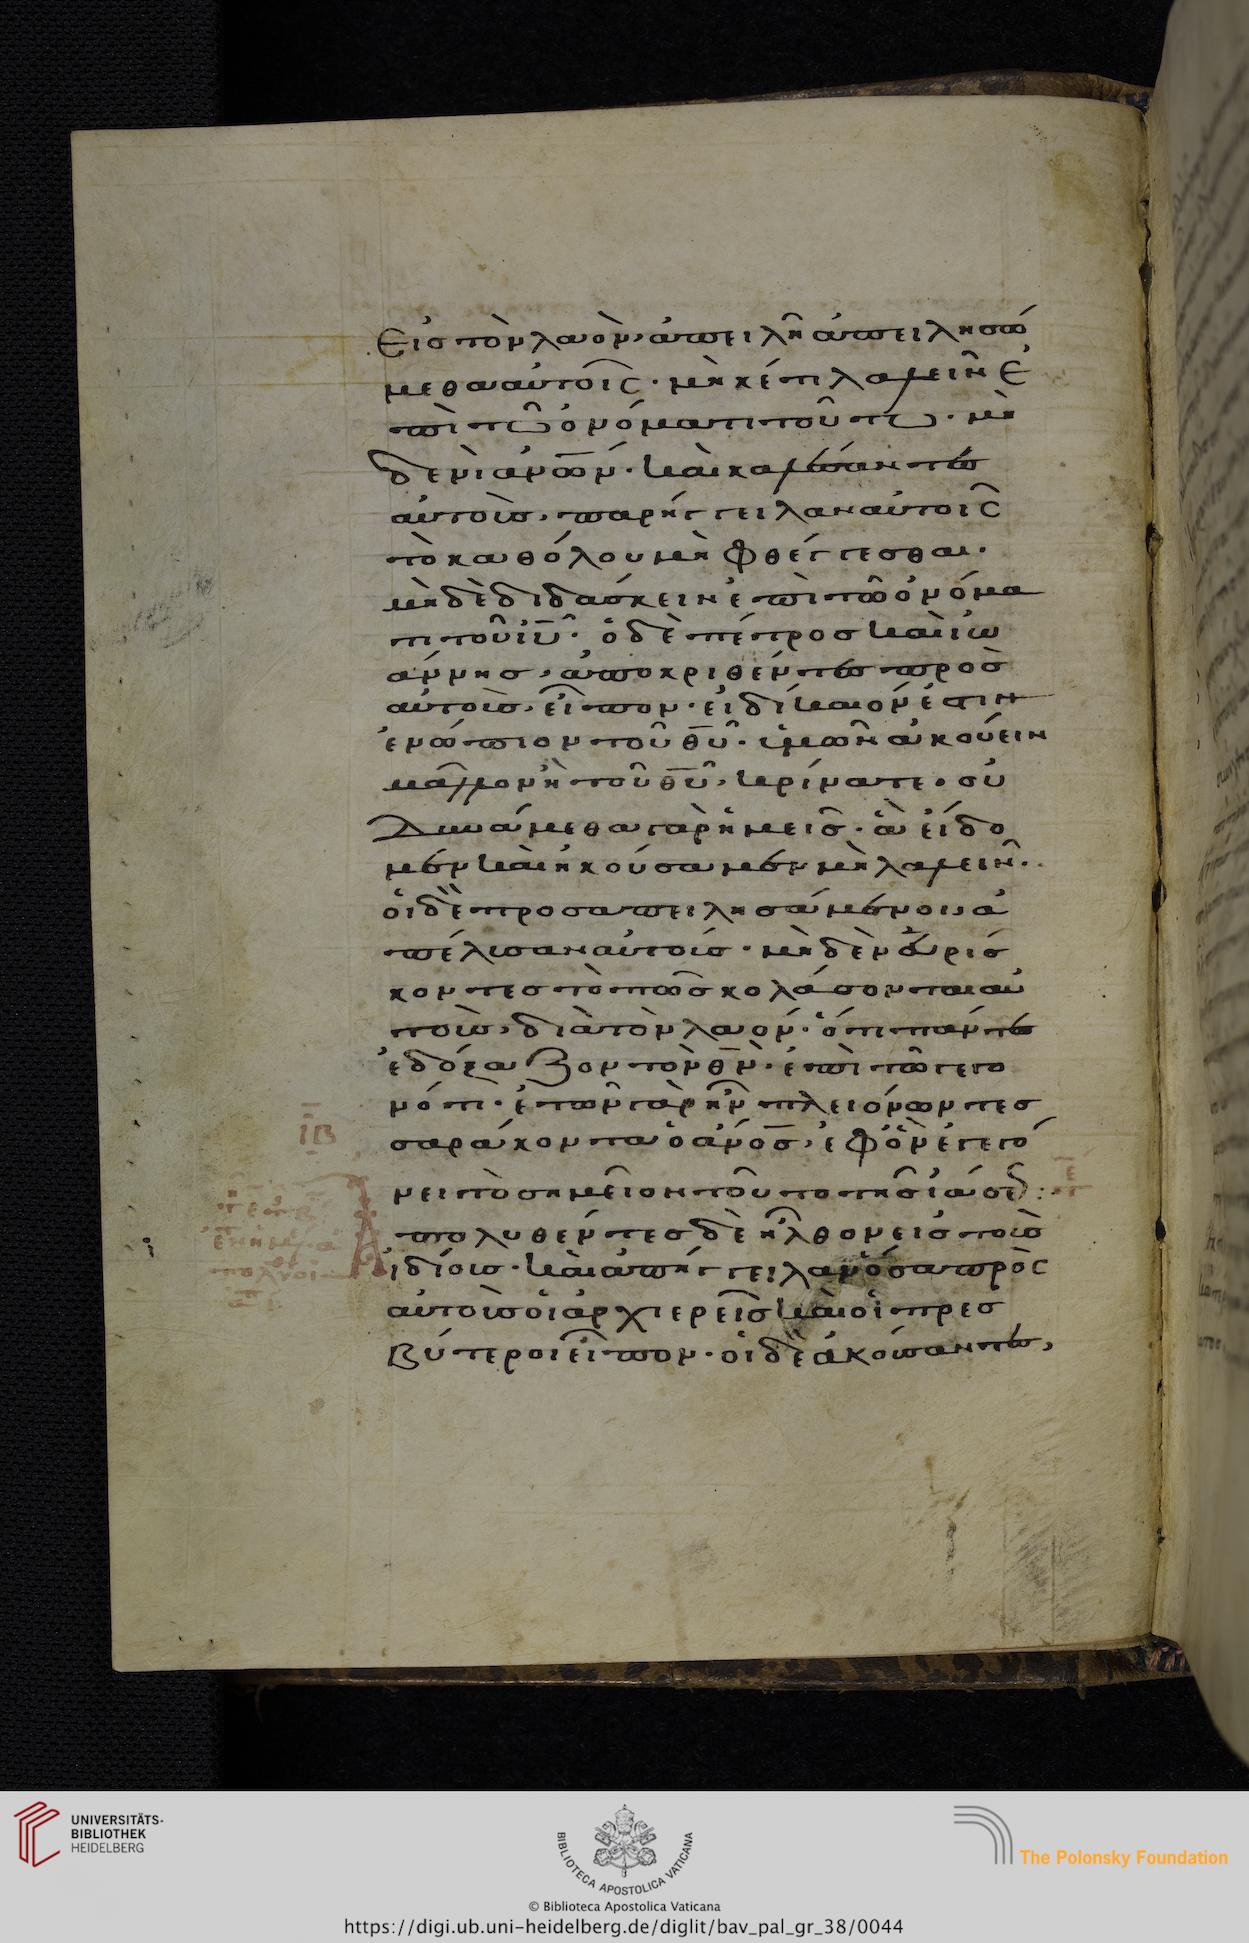 Εἰς τὸν λαὸν, ἀπειλῆ ἀπειλησώ
μεθα αὐτοῖς · μηκέτι λαλεῖν ἐ
πὶ τῶ ὀνόματι τούτω · μη
δενὶ ἀνων · καὶ καλέσαντες
αὐτοὺς, παρήγγειλαν αὐτοῖς
τὸ καθόλου μὴ φθέγγεσθαι ·
μὴδὲ διδάσκειν ἐπὶ τῶ ὀνόμα
τι τοῦ ιυ · ὁ δὲ πέτρος καὶ ἰω
άννης, ἀποκριθέντες πρὸς
αὐτοὺς, εἶπον · εἰ δίκαιόν ἐστιν
ἐνώπιον τοῦ θυ · ὑμῶν ἀκούειν
μᾶλλον ἢ τοῦ θυ, κρίνατε · οὐ
δυνάμεθα γὰρ ἡμεῖς · ἃ εἴδο
μεν καὶ ἠκούσαμεν μὴ λαλεῖν ·
οἱ δὲ προσαπειλησάμενοι ἀ
πέλυσαν αὐτοὺς · μηδὲν εὑρίσ
κοντες τὸ πῶς κολάσονται αὐ
τοὺς, διὰ τὸν λαόν · ὅτι πάντες
ἐδόξαζον τὸν θν · ἐπὶ τῶ γεγο
νότι · ἐτῶν γὰρ ἦν πλειόνων τεσ
σαράκοντα ὁ ανος, ἐφ' ὃν ἐγεγό
νει τὸ σημεῖον τοῦτο τῆς ἰάσεως :
ΙΒ
Ἀπολυθέντες δὲ ἦλθον εἰς τοὺς
ἰδίους · καὶ ἀπήγγειλαν ὅσα πρὸς
αὐτοὺς οἱ ἀρχιερεῖς καὶ οἱ πρεσ
βύτεροι εἶπον · οἱ δὲ ἀκούσαντες,
UNIVERSITÄTS-
BIBLIOTHEK
HEIDELBERG
BIBLIOTECA APOSTOLICA VATICANA
The Polonsky Foundation
© Biblioteca Apostolica Vaticana
https://digi.ub.uni-heidelberg.de/diglit/bav_pal_gr_38/0044